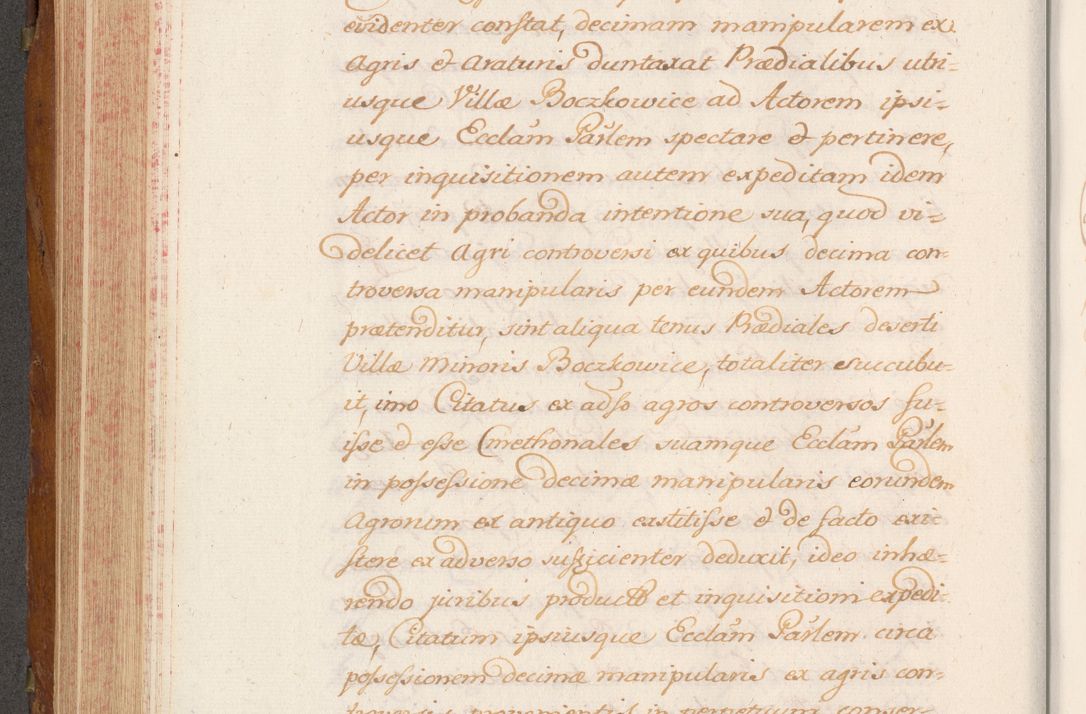 evidenter constat, decimam manipularem ex
Agris & Araturis duntaxat Prædialibus utri-
usque Villæ Boczkowice ad Actorem ipsi-
usque Ecclam Parlem spectare & pertinere,
per inquisitionem autem expeditam idem
Actor in probanda intentione sua, quod vi-
delicet Agri controversi ex quibus decima con-
troversa manipularis per eundem Actorem
prætenditur, sint aliqua tenus Prædiales deserti
Villæ Minoris Boczkowice, totaliter succubu-
it, imo Citatus ex adso agros controversos fu-
isse & esse Cmethonales suamque Ecclam Parlem
in possessione decimæ manipularis eorundem
Agrorum ex antiquo exstitisse & de facto exi-
stere ex adverso sufficienter deduxit, ideo inhæ-
rendo juribus productis et inquisitioni expedi-
tæ, Citatum ipsiusque Ecclam Parlem circa
possessionem decimæ manipularis ex agris con-
troversis provenientis in perpetuum conser-